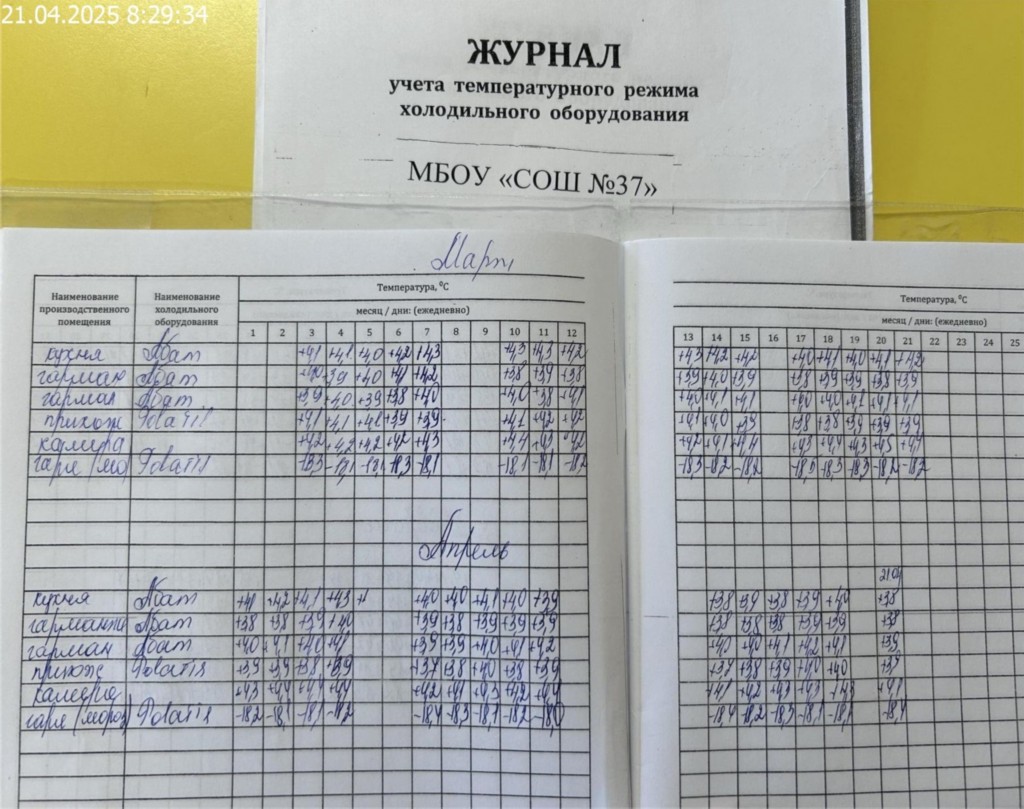 21.04.2025 8:29:34
ЖУРНАЛ
учета температурного режима
холодильного оборудования
МБОУ «СОШ №37»
Март
Наименование производственного помещения
Наименование холодильного оборудования
Температура, ⁰С
месяц / дни: (ежедневно)
1 2 3 4 5 6 7 8 9 10 11 12
кухня Абат +4,1 +4,1 +4,0 +4,2 +4,3 +4,3 +4,3 +4,2
Абат +4,0 +4,1 +4,2 +3,8 +3,9 +3,8
Абат +3,9 +4,0 +3,9 +3,8 +4,0 +4,0 +3,8 +4,1
Polair +4,1 +4,1 +3,9 +3,9 +4,1 +4,2 +4,2
камера +4,2 +4,2 +4,2 +4,2 +4,3 +4,4 +4,3
Polair -18,3 -18,1 -18,1 -18,3 -18,1 -18,1 -18,1 -18,2
Апрель
кухня Абат +4,1 +4,2 +4,1 +4,3 +4,0 +4,0 +4,1 +4,0 +3,9
Абат +3,8 +3,8 +3,9 +4,0 +3,9 +3,8 +3,9 +3,9 +3,9
Абат +4,0 +4,1 +4,0 +4,1 +3,9 +3,9 +4,0 +4,1 +4,2
Polair +3,9 +3,9 +3,8 +3,9 +3,7 +3,8 +4,0 +3,8 +3,9
камера +4,3 +4,4 +4,4 +4,4 +4,2 +4,1 +4,3 +4,2 +4,4
Polair -18,2 -18,1 -18,1 -18,2 -18,4 -18,3 -18,1 -18,2 -18,0
Температура, ⁰С
месяц / дни: (ежедневно)
13 14 15 16 17 18 19 20 21 22 23 24 25
+4,3 +4,2 +4,2 +4,0 +4,1 +4,0 +4,1 +4,2
+3,9 +4,0 +3,9 +3,8 +3,9 +3,9 +3,8 +3,9
+4,0 +4,1 +4,1 +4,0 +4,0 +4,1 +4,1
+4,1 +4,0 +3,9 +3,8 +3,8 +3,9 +3,9 +3,9
+4,2 +4,1 +4,4 +4,3 +4,4 +4,3 +4,4
-18,3 -18,2 -18,2 -18,3 -18,3 -18,2 -18,2
21.04
+3,8 +3,9 +3,8 +3,9 +4,0 +3,8
+3,8 +3,8 +3,8 +3,9 +3,9 +3,8
+4,0 +4,0 +4,1 +4,2 +4,1 +3,9
+3,7 +3,8 +3,9 +4,0 +4,0 +3,9
+4,1 +4,2 +4,3 +4,3 +4,3 +4,1
-18,4 -18,2 -18,3 -18,1 -18,1 -18,4